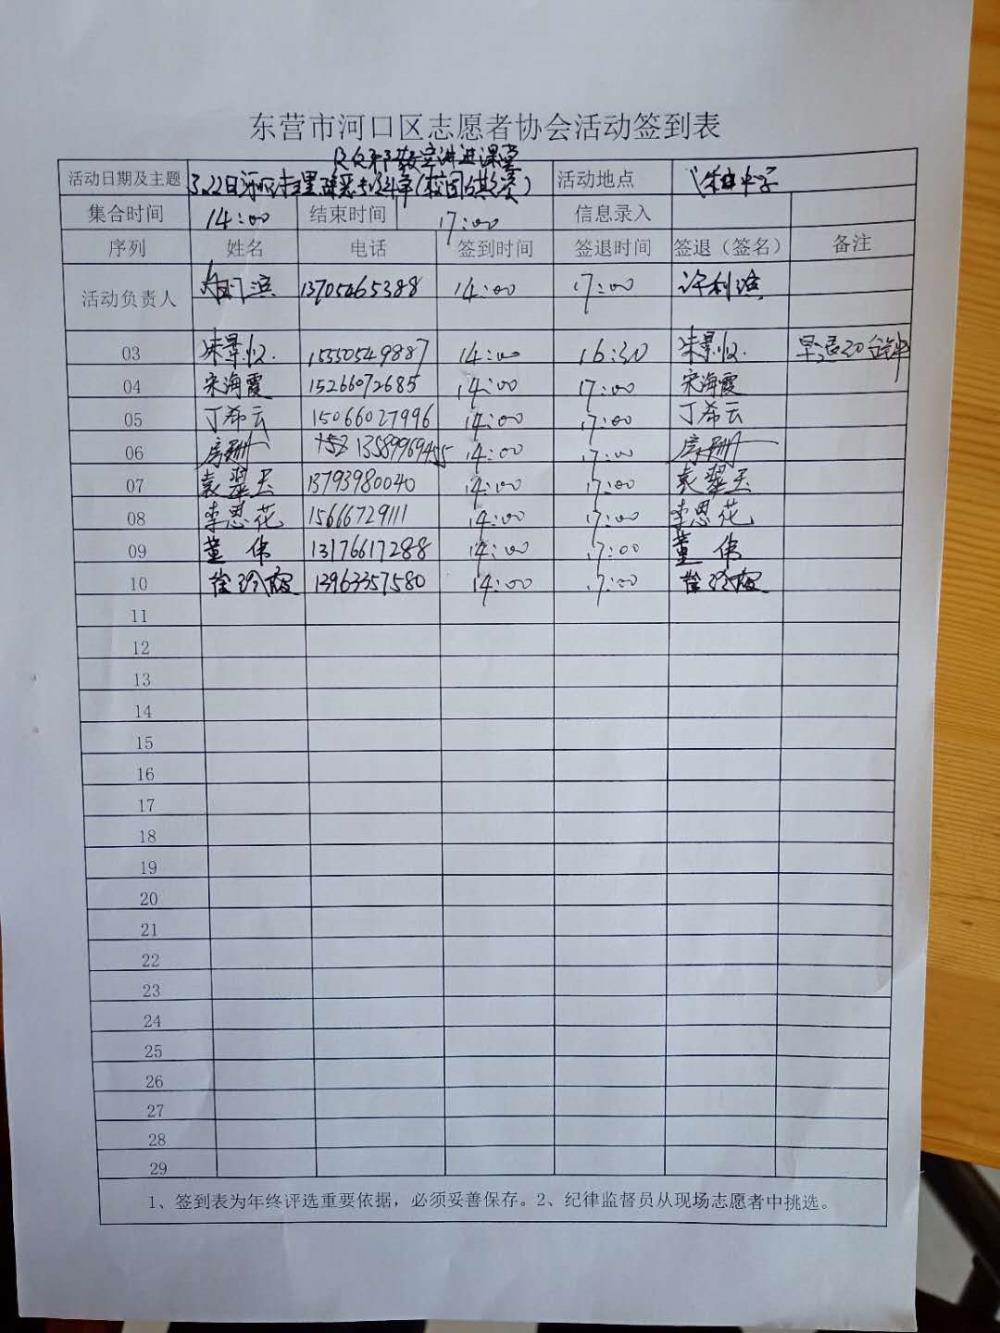 东营市河口区志愿者协会活动签到表
及反邪教宣讲进课堂
活动日期及主题 3.22日河口 扫黑除恶 (校园 ) 活动地点 中学
集合时间 14:00 结束时间 17:00 信息录入
序列 姓名 电话 签到时间 签退时间 签退（签名） 备注
活动负责人 13705465388 14:00 17:00 许利滨
03 15550549887 14:00 16:30 早退30分钟
04 宋海霞 15266072685 14:00 17:00 宋海霞
05 丁希云 15066027996 14:00 17:00 丁希云
06 房珊 14:00 17:00 房珊
07 袁翠玉 13793980040 14:00 17:00 袁翠玉
08 李恩花 15666729111 14:00 17:00 李恩花
09 董伟 13176617288 14:00 17:00 董伟
10 13963357580 14:00 17:00
11
12
13
14
15
16
17
18
19
20
21
22
23
24
25
26
27
28
29
1、签到表为年终评选重要依据，必须妥善保存。2、纪律监督员从现场志愿者中挑选。